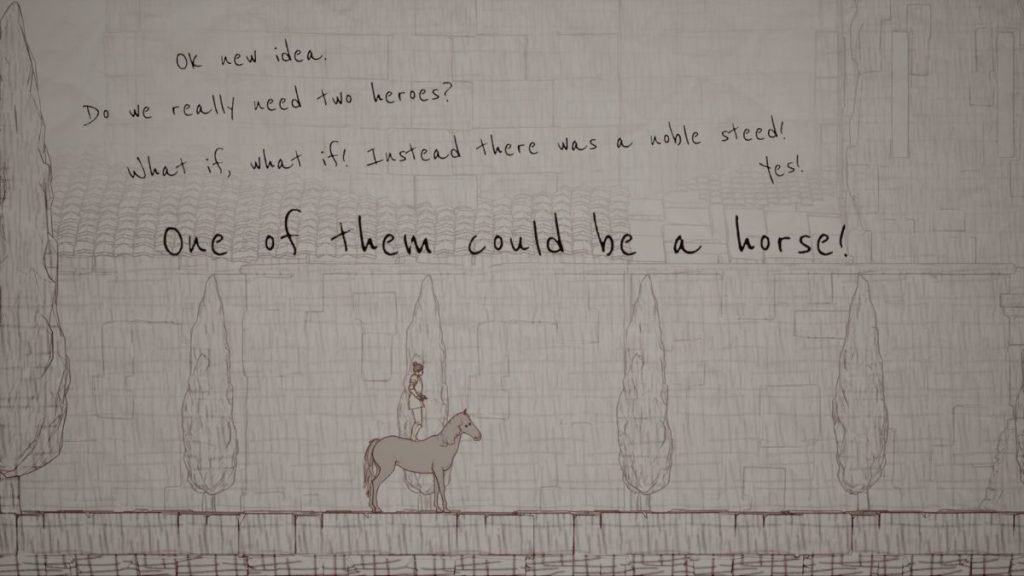 Ok new idea.
Do we really need two heroes?
What if, what if! Instead there was a noble steed!
Yes!
One of them could be a horse!